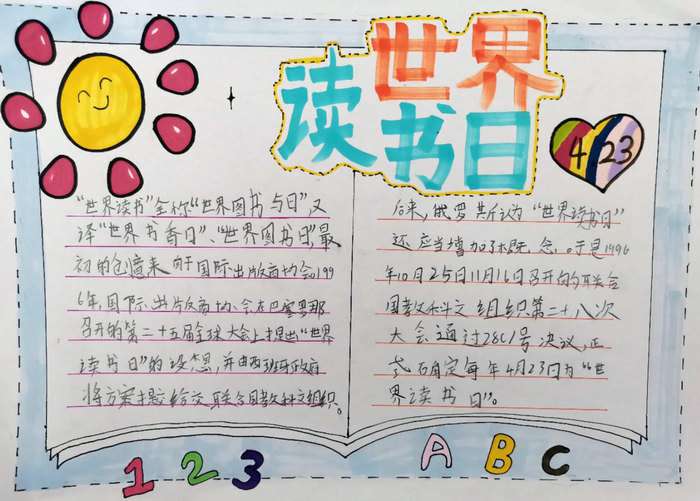 世界
读书日
4 23
"世界读书"全称"世界图书与日",又
译"世界书香日"、"世界图书日",最
初的创意来自于国际出版商协会199
6年,国际出版商协会在巴塞罗那
召开的第二十五届全球大会上提出"世界
读书日"的设想,并由西班牙政府
将方案提给交联合国教科文组织。
后来,俄罗斯认为"世界读书日"
还应当增加 概念,。于是1996
年10月25日11月16日召开的联合
国教科文组织第二十八次
大会通过28C1号决议,正
式确定每年4月23日为"世
界读书日"。
1 2 3
A B C